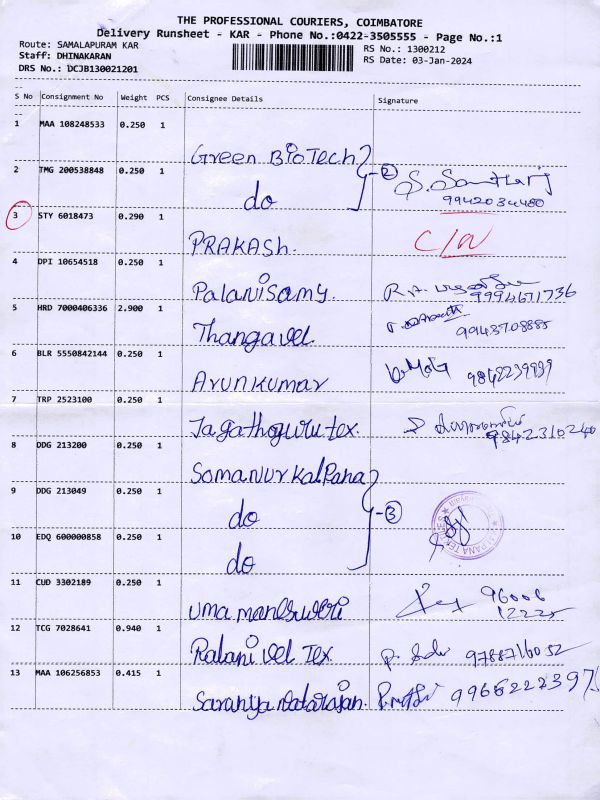 THE PROFESSIONAL COURIERS, COIMBATORE
Delivery Runsheet - KAR - Phone No.:0422-3505555 - Page No.:1
Route: SAMALAPURAM KAR
RS No.: 1300212
Staff: DHINAKARAN
RS Date: 03-Jan-2024
DRS No.: DCJB130021201
S No Consignment No Weight PCS Consignee Details Signature
1 MAA 108248533 0.250 1
Green BioTech
2 TMG 200538848 0.250 1
②
do
9942034480
3 STY 6018473 0.290 1
PRAKASH.
C/N
4 DPI 10654518 0.250 1
Palanisamy.
9994671736
5 HRD 7000406336 2.900 1
Thangavel
9943708885
6 BLR 5550842144 0.250 1
Arunkumar
9842239999
7 TRP 2523100 0.250 1
Jagathguru tex.
9842310240
8 DDG 213200 0.250 1
Somanur Kalpana
9 DDG 213049 0.250 1
do
③
10 EDQ 600000858 0.250 1
do
11 CUD 3302189 0.250 1
Uma maheswari
96006
12225
12 TCG 7028641 0.940 1
Palani vel Tex.
9788716052
13 MAA 106256853 0.415 1
Saranya Natarajan.
996622397